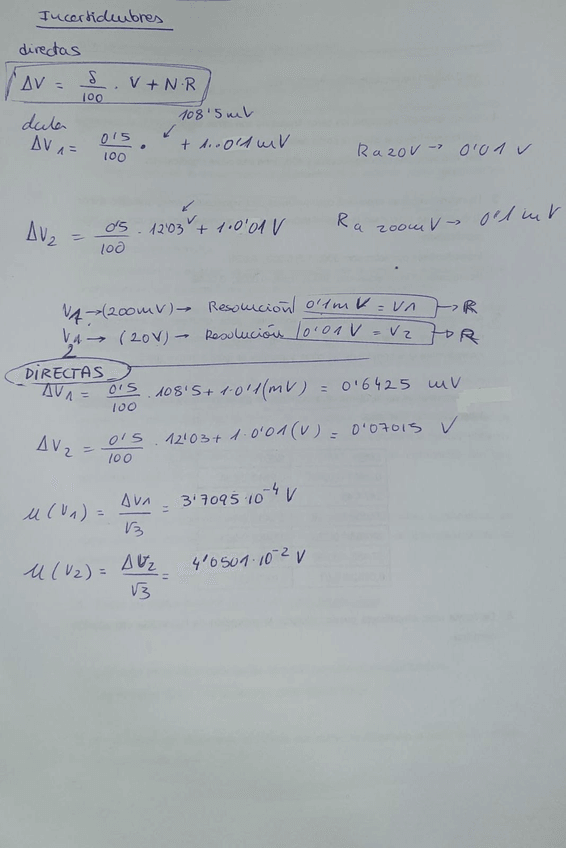 Incertidumbres
directas
ΔV = δ/100 · V + N·R
108'5 mV
ΔV1 = 0'5/100 · + 1·0'1 mV
R a 20V → 0'01 V
ΔV2 = 0'5/100 · 12'03 V + 1·0'01 V
R a 200mV → 0'1 mV
V1 → (200mV) → Resolución 0'1mV = V1 → R
V2 → (20V) → Resolución 0'01 V = V2 → R
DIRECTAS
ΔV1 = 0'5/100 · 108'5 + 1·0'1 (mV) = 0'6425 mV
ΔV2 = 0'5/100 · 12'03 + 1·0'01 (V) = 0'07015 V
μ(V1) = ΔV1/√3 = 3'7095·10⁻⁴ V
μ(V2) = ΔV2/√3 = 4'0501·10⁻² V